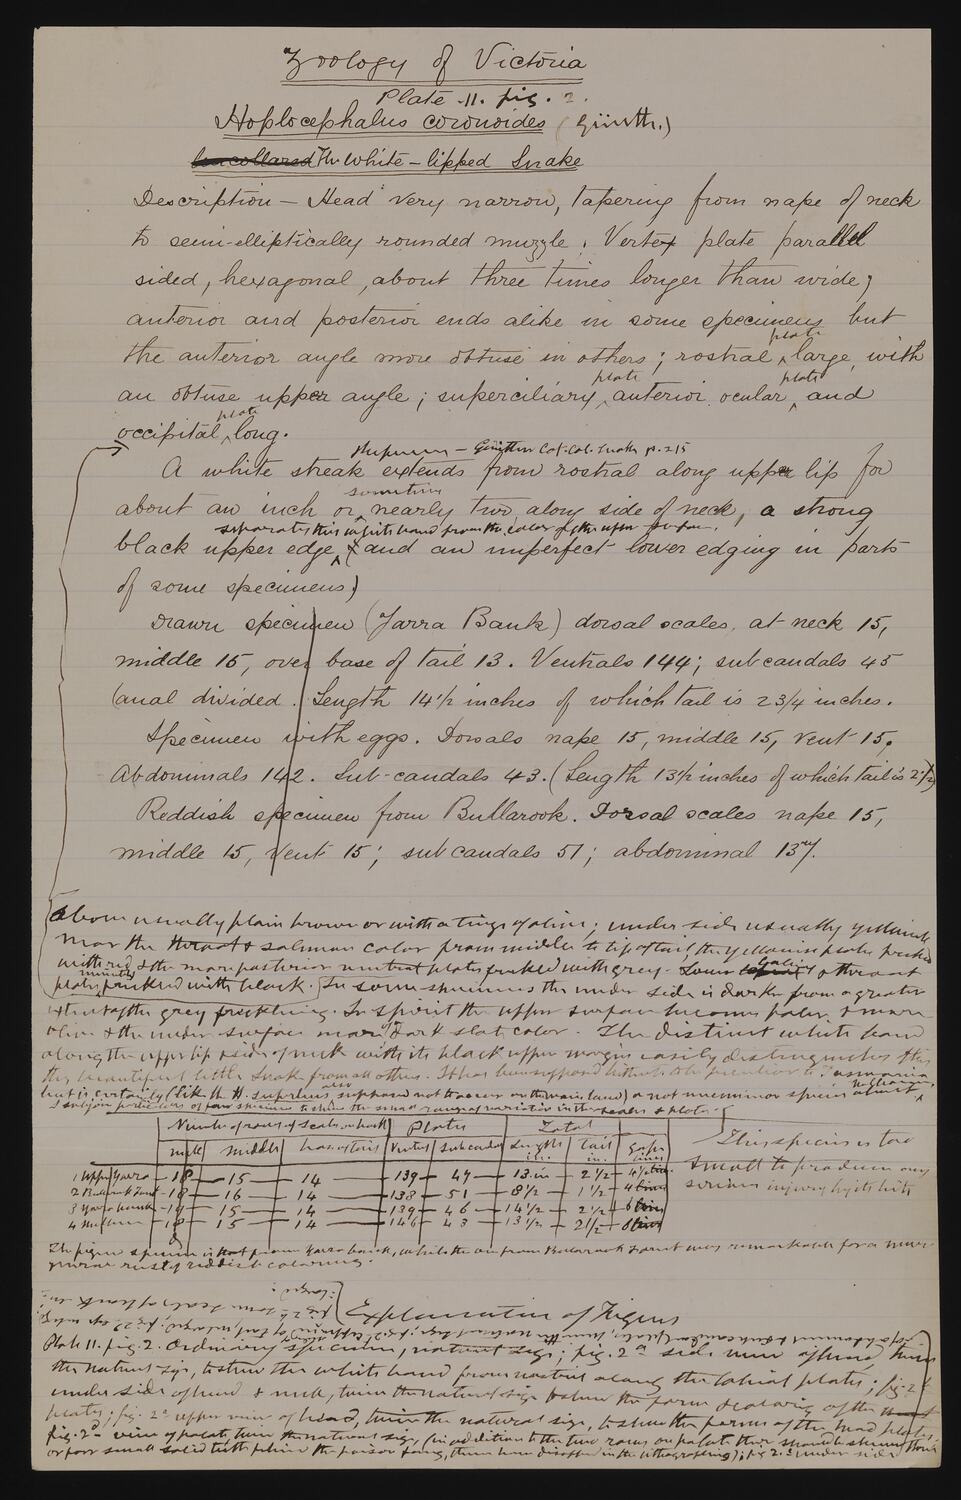 Zoology of Victoria
Plate 11. fig. 2.
Hoplocephalus coronoides (Günth.)
The White-lipped Snake
Description — Head very narrow, tapering from nape of neck
to semi-elliptically rounded muzzle. Vertex plate parallel
sided, hexagonal, about three times longer than wide;
anterior and posterior ends alike in some specimens but
the anterior angle more obtuse in others; rostral plate large, with
an obtuse upper angle; superciliary plate anterior ocular plate and
occipital plate long.
Günther Cat. Col. Snakes p. 215
A white streak extends from rostral along upper lip for
about an inch or sometimes nearly two along side of neck, a strong
separates this white band from the color of the upper surface.
black upper edge (and an imperfect lower edging in parts
of some specimens)
Drawn specimen (Yarra Bank) dorsal scales, at neck 15,
middle 15, over base of tail 13. Ventrals 144; subcaudals 45
(anal divided. Length 14 1/2 inches of which tail is 2 3/4 inches.
Specimen with eggs. Dorsals nape 15, middle 15, vent 15.
Abdominals 142. Sub-caudals 43. (Length 13 1/2 inches of which tail is 2 1/2)
Reddish specimen from Bullarook. Dorsal scales nape 15,
middle 15, vent 15; subcaudals 51; abdominal 137.
Above usually plain brown or with a tinge of olive; under side usually yellowish
near the throat & salmon color from middle to tip of tail, the yellowish plates freckled
with red & the more posterior ventral plates freckled with grey. & throat
plates minutely freckled with black. In some specimens the under side is darker from a greater
of the grey freckling. In spirit the upper surface becomes paler & more
olive & the under surface nearly dark slate color. The distinct white band
along the upper lip & side of neck with its black upper margin easily distinguishes
this beautiful little Snake from all others. It has been supposed hitherto to be peculiar to Tasmania
but is certainly (like the H. superbus also supposed not to occur on the mainland) a not uncommon species about
I subjoin particulars of four specimens to show the small range of variation in the scales & plates.
Number of rows of scales on back Plates Total
neck middle base of tail Ventral subcaudal Length in. tail in. Gape lines
1 Upper Yarra 18 15 14 139 49 13 in 2 1/2 4 1/2
2 18 16 14 138 51 8 1/2 1 1/2 4
3 Yarra bank 15 14 139 46 14 1/2 2 1/2 6
4 18 15 14 146 43 13 1/2 2 1/2
This species is too
small to produce any
serious injury by its bite
The figured specimen is from Yarra bank, while the one from Bullarook Forest was remarkable for a more
general rusty reddish colouring.
Explanation of Figures
Plate 11. fig. 2. Ordinary specimen, natural size; fig. 2a side view of head, twice
the natural size, to show the white band from nostril along the labial plates; fig. 2b
under side of head & neck, twice the natural size to show the form & coloring of the
plates; fig. 2c upper view of head, twice the natural size, to show the forms of the head plates;
fig. 2d view of palate, twice the natural size, (in addition to the two rows on palate there should be shown three
or four small solid teeth behind the poison fang,